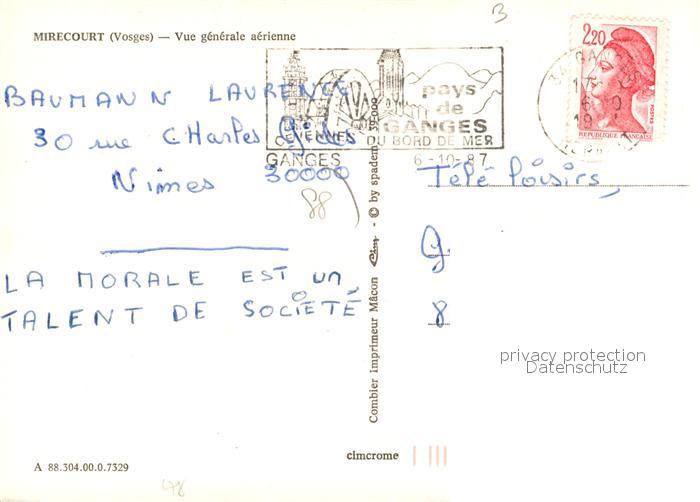 3
MIRECOURT (Vosges) — Vue générale aérienne
2,20
POSTES
REPUBLIQUE FRANÇAISE
pays
de
GANGES
CEVENNES DU BORD DE MER
GANGES 6-10-87
BAUMANN LAURENCE
30 rue CHARLES Gides
Nimes 30000
88
LA MORALE EST UN
TALENT DE SOCIÉTÉ
Télé Loisirs,
G.
8
Combier imprimeur Mâcon Cim - © by spadem 39-000
privacy protection
Datenschutz
cimcrome
A 88.304.00.0.7329
48